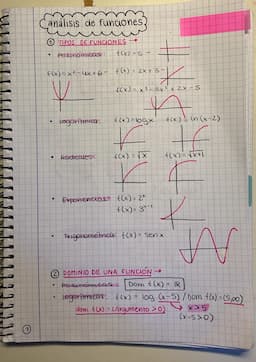 análisis de funciones
① TIPOS DE FUNCIONES →
• Polinómicas: f(x) = 5 →
f(x) = x² - 4x + 6 → f(x) = 2x + 3 →
f(x) = x³ - 3x² + 2x - 5
• Logarítmica: f(x) = log x f(x) = ln (x-2)
• Radicales: f(x) = √x f(x) = √x+1
• Exponenciales: f(x) = 2ˣ
f(x) = 3ˣ⁻¹
• Trigonométrica: f(x) = sen x
② DOMINIO DE UNA FUNCIÓN →
• Dom f(x) = ℝ
• Logarítmica: f(x) = log (x-5) / Dom f(x) = (5,∞)
dom f(x) = (Argumento > 0) → x > 5
(x-5 > 0)
①